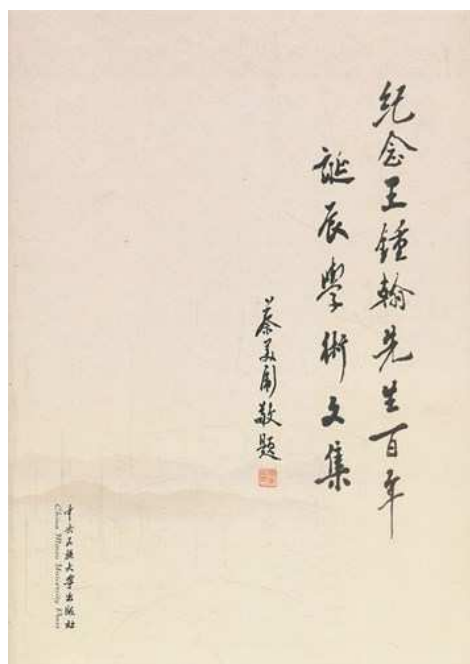 紀念王鍾翰先生百年
誕辰學術文集
蔡美彪敬題
中央民族大学出版社
China Minzu University Press